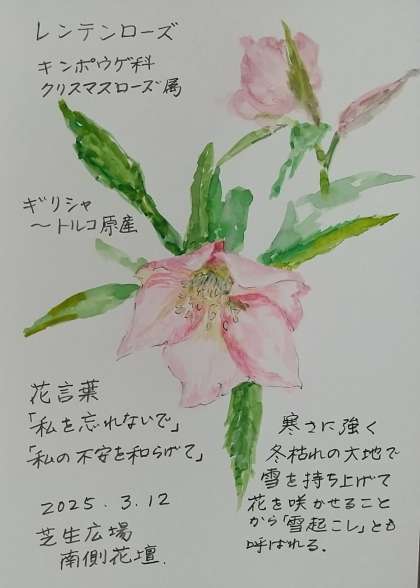 レンテンローズ
キンポウゲ科
クリスマスローズ属
ギリシャ
～トルコ原産
花言葉
「私を忘れないで」
「私の不安を和らげて」
2025.3.12
芝生広場
南側花壇.
寒さに強く
冬枯れの大地で
雪を持ち上げて
花を咲かせること
から「雪起こし」とも
呼ばれる.